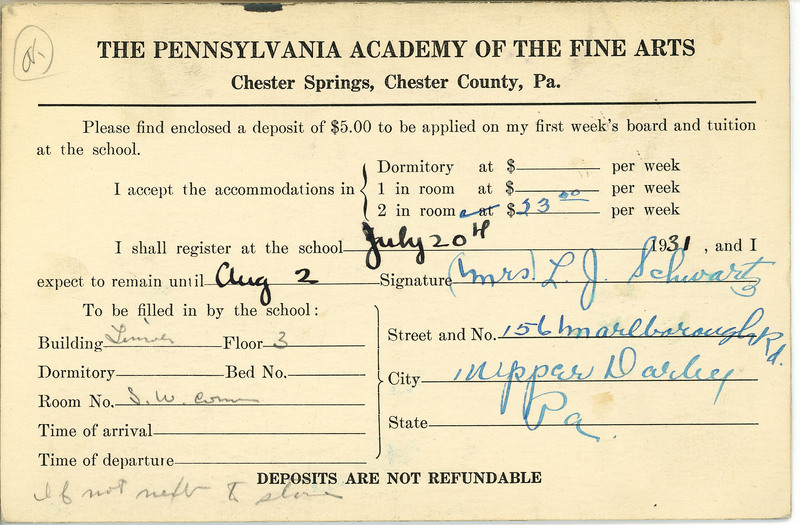 OK
THE PENNSYLVANIA ACADEMY OF THE FINE ARTS
Chester Springs, Chester County, Pa.
Please find enclosed a deposit of $5.00 to be applied on my first week's board and tuition
at the school.
I accept the accommodations in
Dormitory at $ per week
1 in room at $ per week
2 in room at $23 00 per week
I shall register at the school July 20th 1931, and I
expect to remain until Aug 2 Signature (Mrs) L. J. Schwartz
To be filled in by the school:
Building Floor 3
Dormitory Bed No.
Room No. S. W. corner
Time of arrival
Time of departure
Street and No. 156 Marlborough Rd.
City Upper Darby
State Pa.
DEPOSITS ARE NOT REFUNDABLE
If not next to